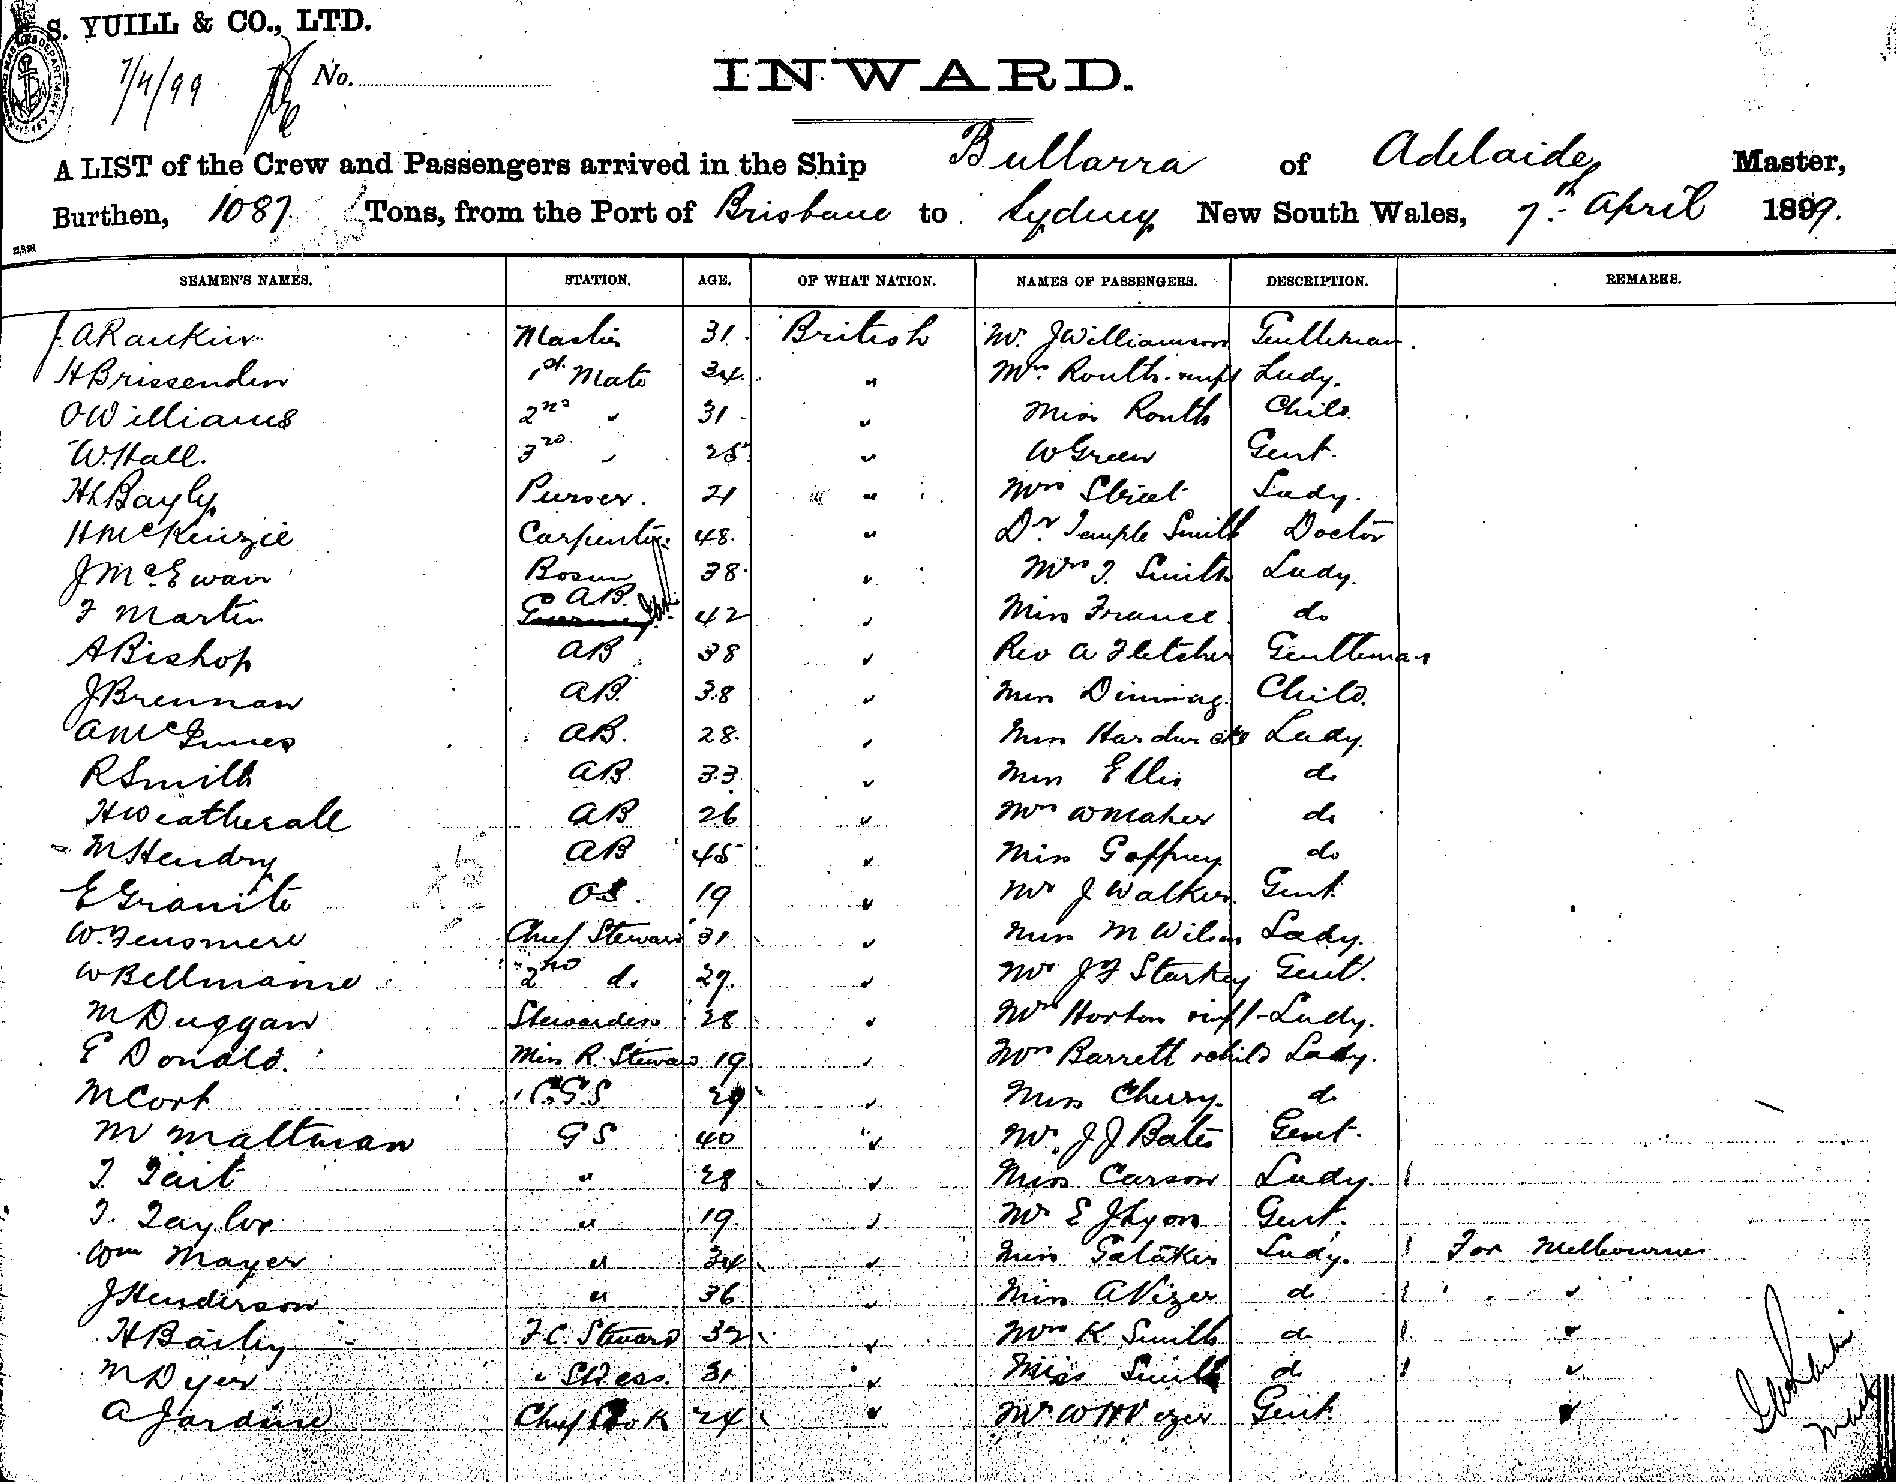 S. YUILL & CO., LTD.
7/4/99 No.
INWARD.
A LIST of the Crew and Passengers arrived in the Ship Bullarra of Adelaide Master,
Burthen, 1087 Tons, from the Port of Brisbane to Sydney New South Wales, 7th April 1899.
SEAMEN'S NAMES. STATION. AGE. OF WHAT NATION. NAMES OF PASSENGERS. DESCRIPTION. REMARKS.
J. A Rankin Master 31 British Mr. J Williamson Gentleman.
H Brissenden 1st Mate 34 " Mrs Routh Lady.
O Williams 2nd " 31 " Miss Routh Child
W. Hall. 3rd " 25 " W Green Gent.
H L Bayly Purser. 21 " Mrs Street Lady.
H McKenzie Carpenter 48 " Dr Temple Smith Doctor
J McEwan Bosun 38 " Mrs T. Smith Lady.
F Martin AB. 42 " Miss France do
A Bishop AB 38 " Rev A Fletcher Gentleman
J Brennan AB. 38 " Miss Child.
A McInnes AB. 28 " Miss Hardwicke Lady.
R Smith AB 33 " Miss Ellis do
H Weatherall AB 26 " Mrs W Maher do
M Hendry AB 45 " Miss Gaffney do
E Granite OS. 19 " Mr J Walker Gent.
W. Chief Steward 31 " Miss M Wilson Lady.
W Bellmaine 2nd do. 29 " Mr J F Starkey Gent.
M Duggan Stewardess 28 " Mrs Horton Lady.
E Donald. Mess R. Steward 19 " Mrs Barrett & child Lady.
M Cork GS 29 " Miss Cherry do
M Maltman GS 40 " Mr. J J Bates Gent.
T Tait " 28 " Miss Carson Lady
T. Taylor " 19 " Mr E J Lyons Gent.
Wm Mayer " 34 " Miss Lady. For Melbourne
J Henderson " 36 " Miss A Vizer do "
H Baily F.C. Steward 32 " Mrs K Smith do "
M Dyer " StDess. 31 " Miss Smith do "
A Jardine Chief Cook 24 " Mr W H Vizer Gent "